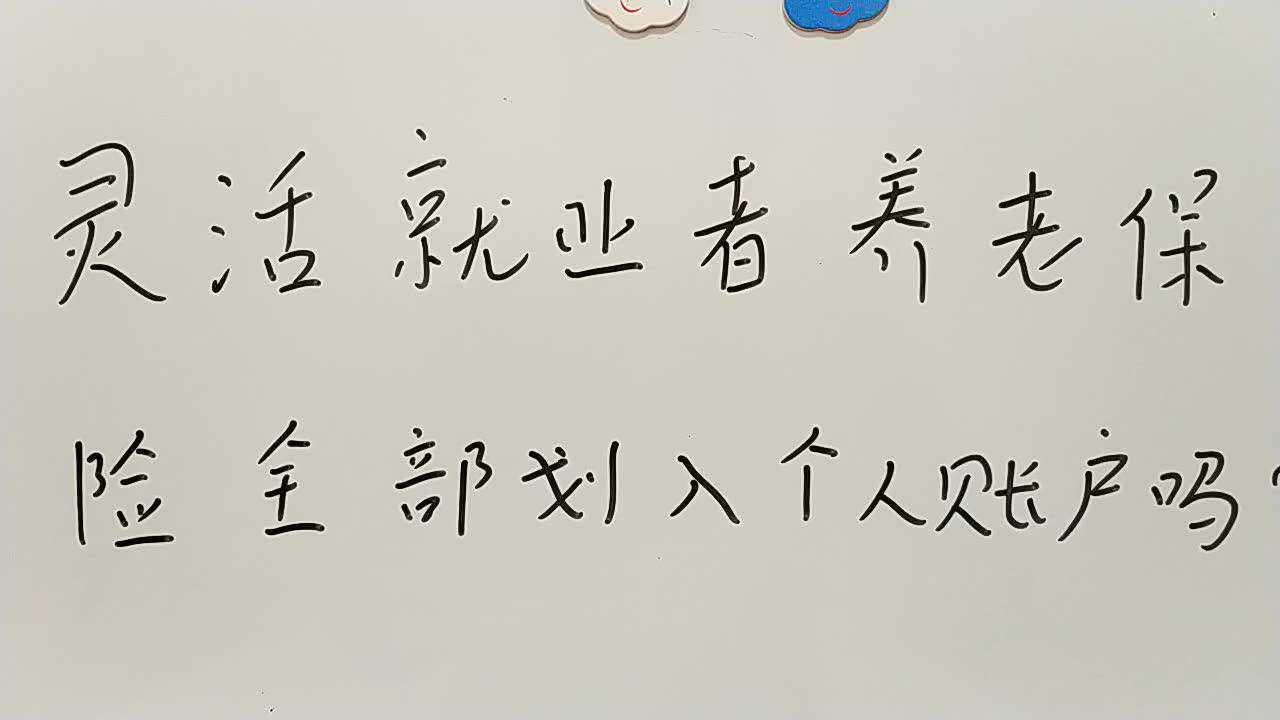 灵活就业者养老保
险全部划入个人账户吗?